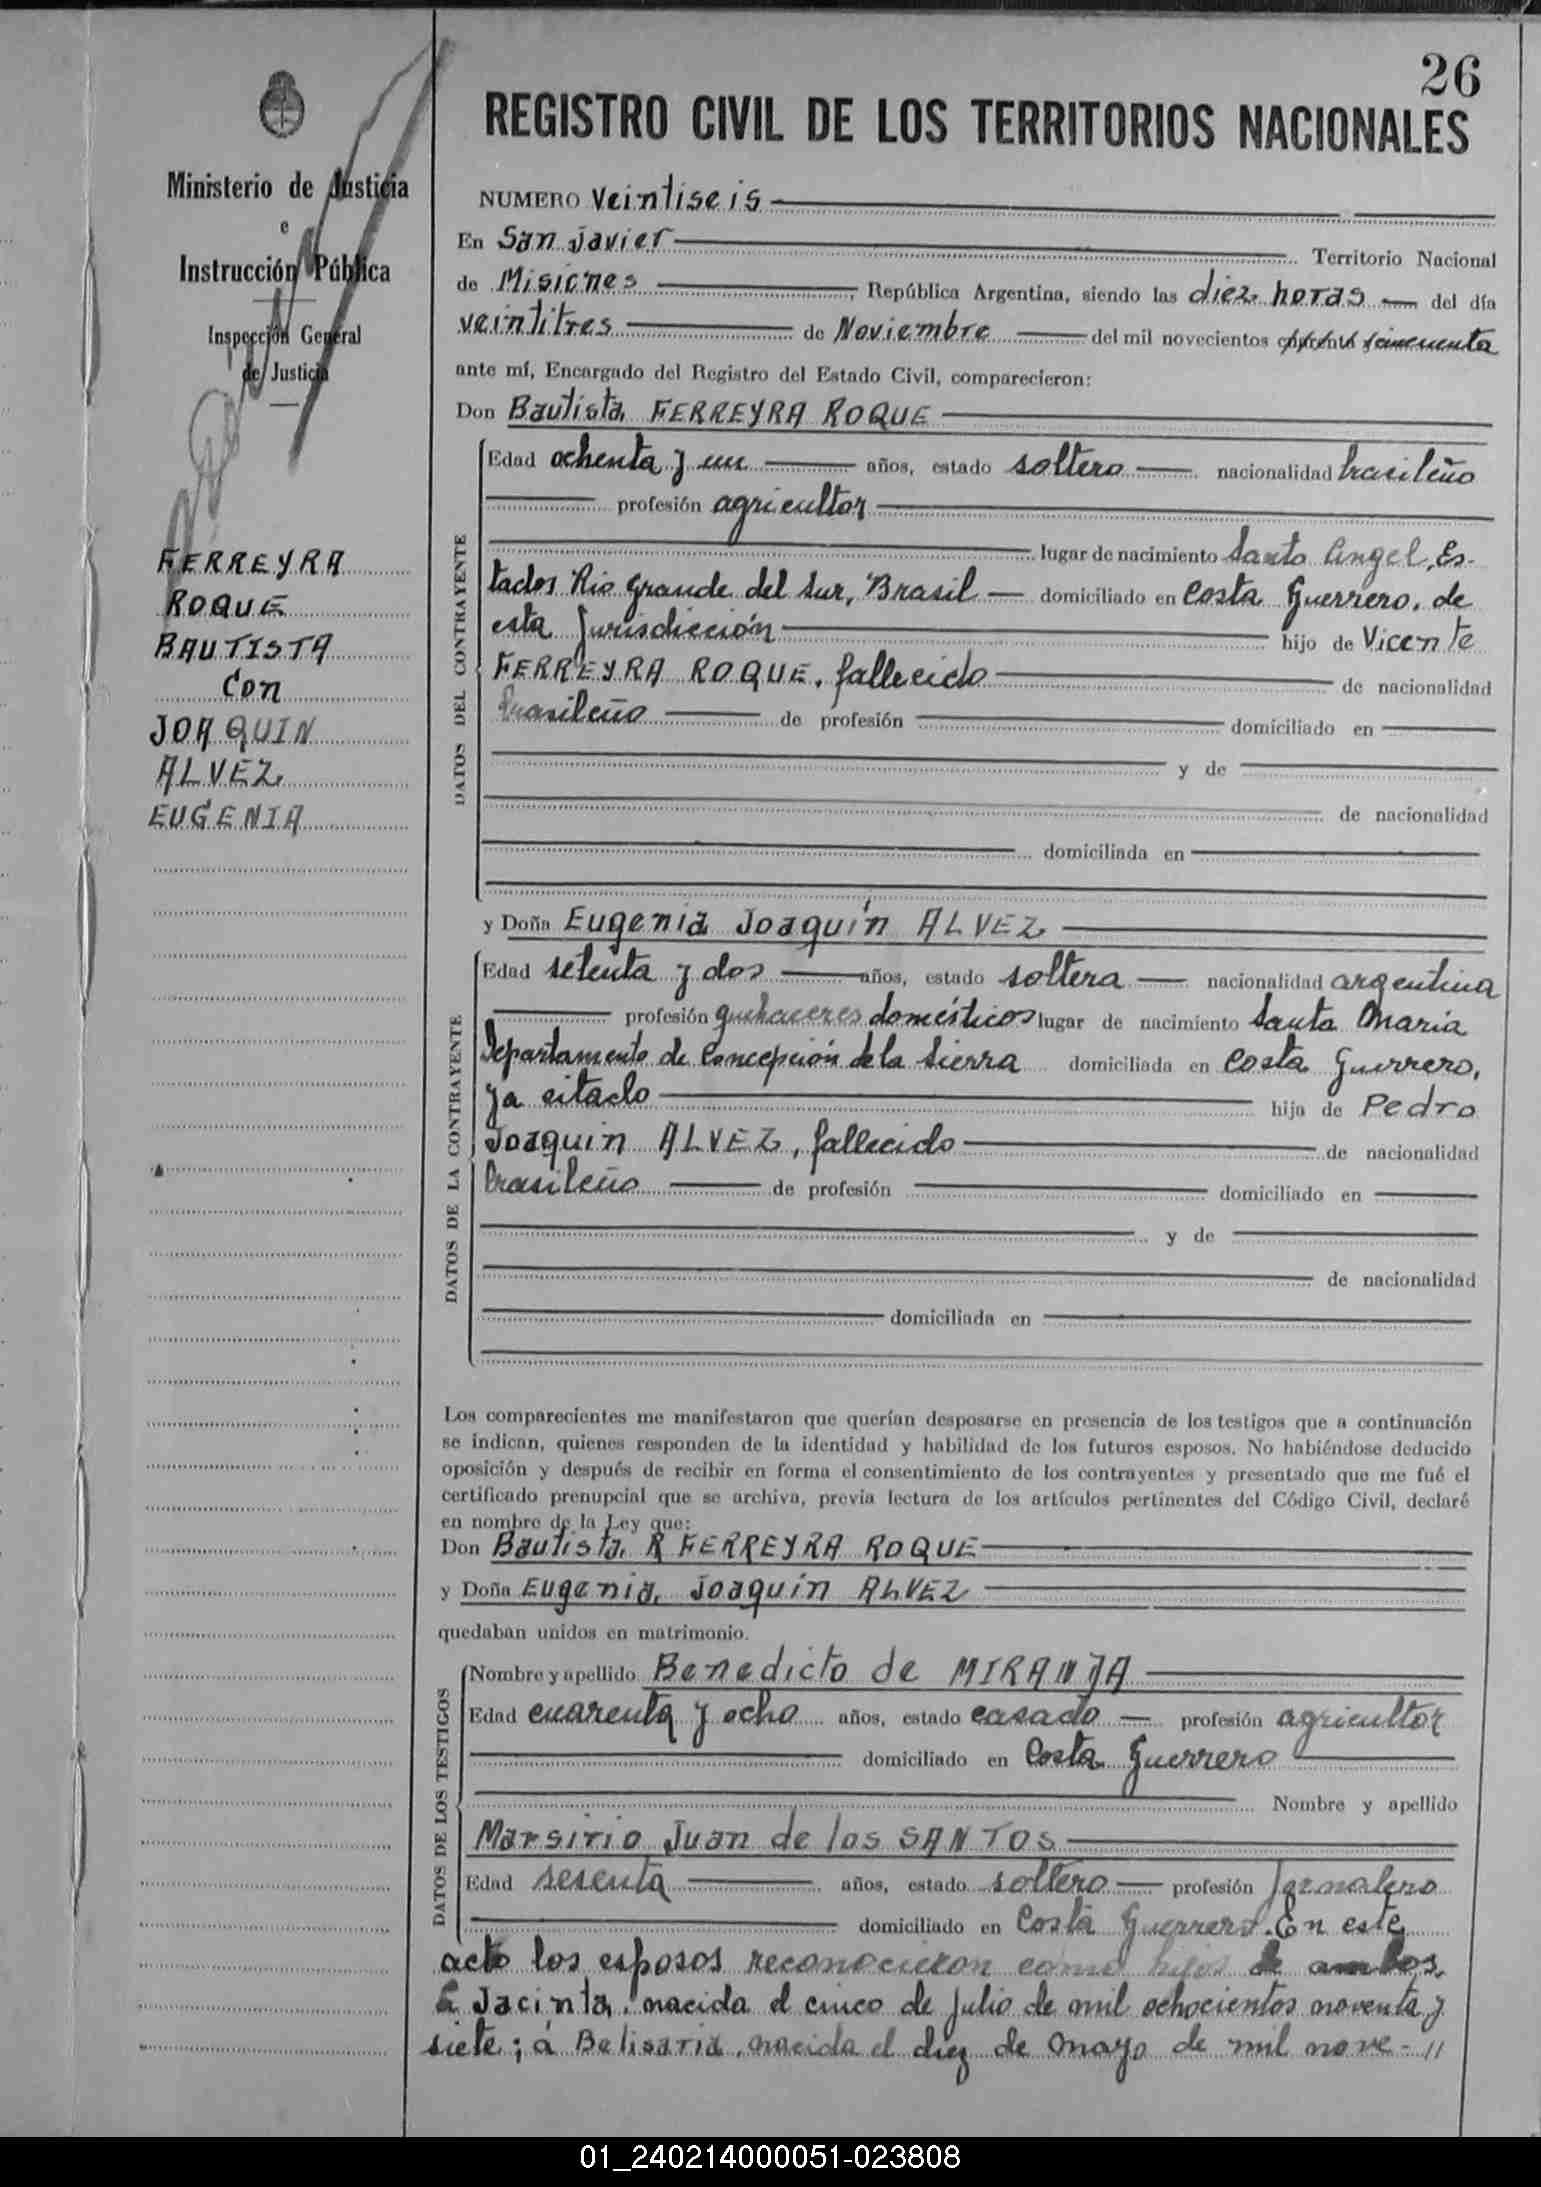 26
Ministerio de Justicia
e
Instrucción Pública
Inspección General
de Justicia
FERREYRA
ROQUE
BAUTISTA
con
JOAQUIN
ALVEZ
EUGENIA
REGISTRO CIVIL DE LOS TERRITORIOS NACIONALES
NUMERO veintiseis
En San Javier Territorio Nacional
de Misiones, República Argentina, siendo las diez horas del día
veintitres de Noviembre del mil novecientos
ante mí, Encargado del Registro del Estado Civil, comparecieron:
Don Bautista FERREYRA ROQUE
DATOS DEL CONTRAYENTE
Edad ochenta y un años, estado soltero nacionalidad brasileño
profesión agricultor
lugar de nacimiento Santo Angel, Es-
tados Rio Grande del Sur, Brasil domiciliado en Costa Guerrero, de
esta Jurisdicción hijo de Vicente
FERREYRA ROQUE, fallecido de nacionalidad
brasileño de profesión domiciliado en
y de
de nacionalidad
domiciliada en
y Doña Eugenia Joaquín ALVEZ
DATOS DE LA CONTRAYENTE
Edad setenta y dos años, estado soltera nacionalidad argentina
profesión quehaceres domésticos lugar de nacimiento Santa Maria
Departamento de Concepción de la Sierra domiciliada en Costa Guerrero,
ya citado hija de Pedro
Joaquin ALVEZ, fallecido de nacionalidad
brasileño de profesión domiciliado en
y de
de nacionalidad
domiciliada en
Los comparecientes me manifestaron que querían desposarse en presencia de los testigos que a continuación
se indican, quienes responden de la identidad y habilidad de los futuros esposos. No habiéndose deducido
oposición y después de recibir en forma el consentimiento de los contrayentes y presentado que me fué el
certificado prenupcial que se archiva, previa lectura de los artículos pertinentes del Código Civil, declaré
en nombre de la Ley que:
Don Bautista R FERREYRA ROQUE
y Doña Eugenia Joaquín ALVEZ
quedaban unidos en matrimonio.
DATOS DE LOS TESTIGOS
Nombre y apellido Benedicto de MIRANDA
Edad cuarenta y ocho años, estado casado profesión agricultor
domiciliado en Costa Guerrero
Nombre y apellido
Marsirio Juan de los SANTOS
Edad sesenta años, estado soltero profesión Jornalero
domiciliado en Costa Guerrero. En este
acto los esposos reconocieron como hijos de ambos,
á Jacinta, nacida el cinco de Julio de mil ochocientos noventa y
siete; á Belisaria, nacida el diez de Mayo de mil nove- //
01_240214000051-023808